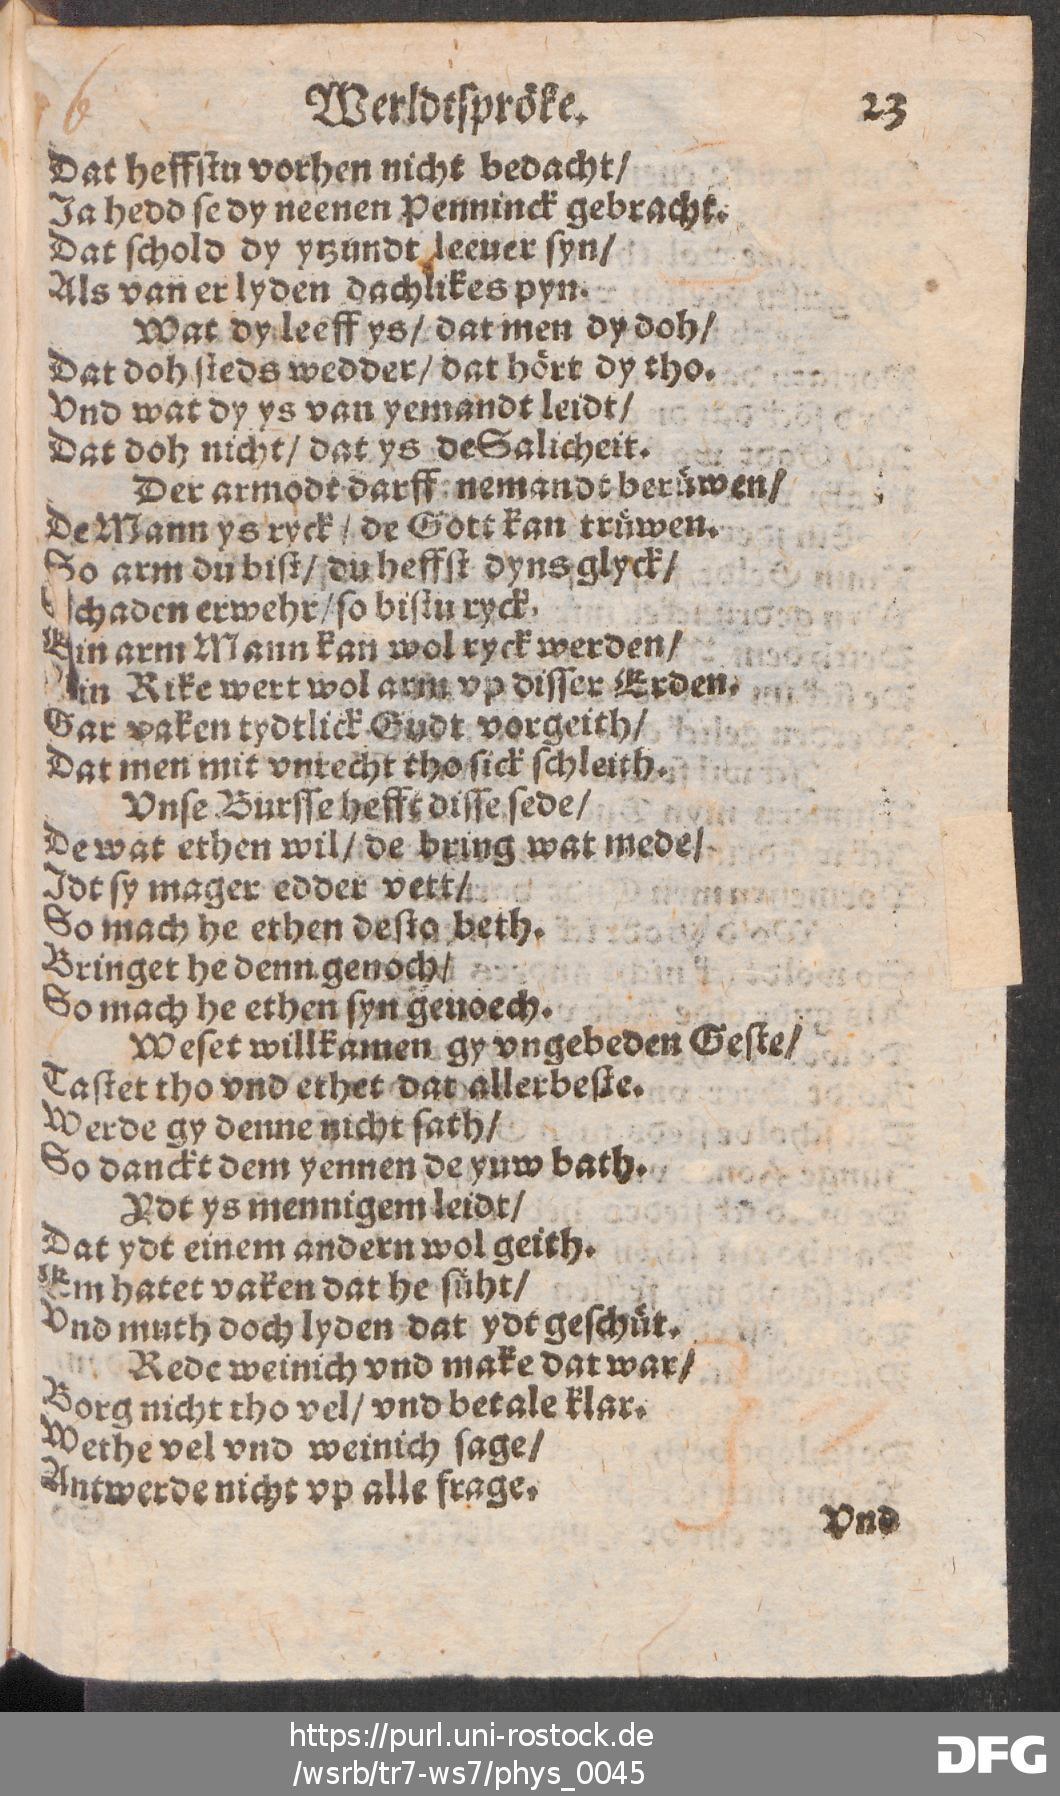 6
Werldtspröke. 23
Dat heffstu vorhen nicht bedacht/
Ja hedd se dy neenen Penninck gebracht.
Dat schold dy ytzundt leeuer syn/
Als van er lyden dachlikes pyn.
Wat dy leeff ys/ dat men dy doh/
Dat doh steds wedder/ dat hört dy tho.
Vnd wat dy ys van yemandt leidt/
Dat doh nicht/ dat ys de Salicheit.
Der armodt darff nemandt berüwen/
De Mann ys ryck/ de Gott kan trüwen.
So arm du bist/ du heffst dyns glyck/
Schaden erwehr/ so bistu ryck.
Ein arm Mann kan wol ryck werden/
Ein Rike wert wol arm vp disser Erden.
Gar vaken tydtlick Gudt vorgeith/
Dat men mit vnrecht tho sick schleith.
Vnse Bursse hefft disse sede/
De wat ethen wil/ de bring wat mede/
Idt sy mager edder vett/
So mach he ethen desto beth.
Bringet he denn genoch/
So mach he ethen syn genoech.
Weset willkamen gy vngebeden Geste/
Tastet tho vnd ethet dat allerbeste.
Werde gy denne nicht sath/
So danckt dem yennen de yuw bath.
Ydt ys mennigem leidt/
Dat ydt einem andern wol geith.
Em hatet vaken dat he süht/
Vnd muth doch lyden dat ydt geschüt.
Rede weinich vnd make dat war/
Borg nicht tho vel/ vnd betale klar.
Wethe vel vnd weinich sage/
Antwerde nicht vp alle frage.
Vnd
https://purl.uni-rostock.de
/wsrb/tr7-ws7/phys_0045
DFG